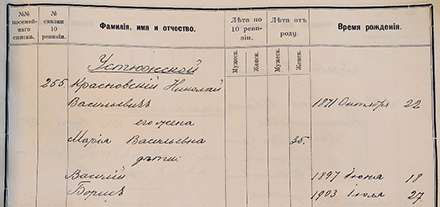 №№ посемейнаго списка.
№ связки 10 ревизіи.
Фамилія, имя и отчество.
Лѣта по 10 ревизіи.
Мужеск.
Женск.
Лѣта отъ роду.
Мужеск.
Женск.
Время рожденія.
Устюжской
255. Красновскій Николай
Васильевичъ 1871 Октября 22
его жена
Марія Васильевна 35.
дѣти:
Василій 1897 Іюня 18
Борисъ 1903 Іюля 27